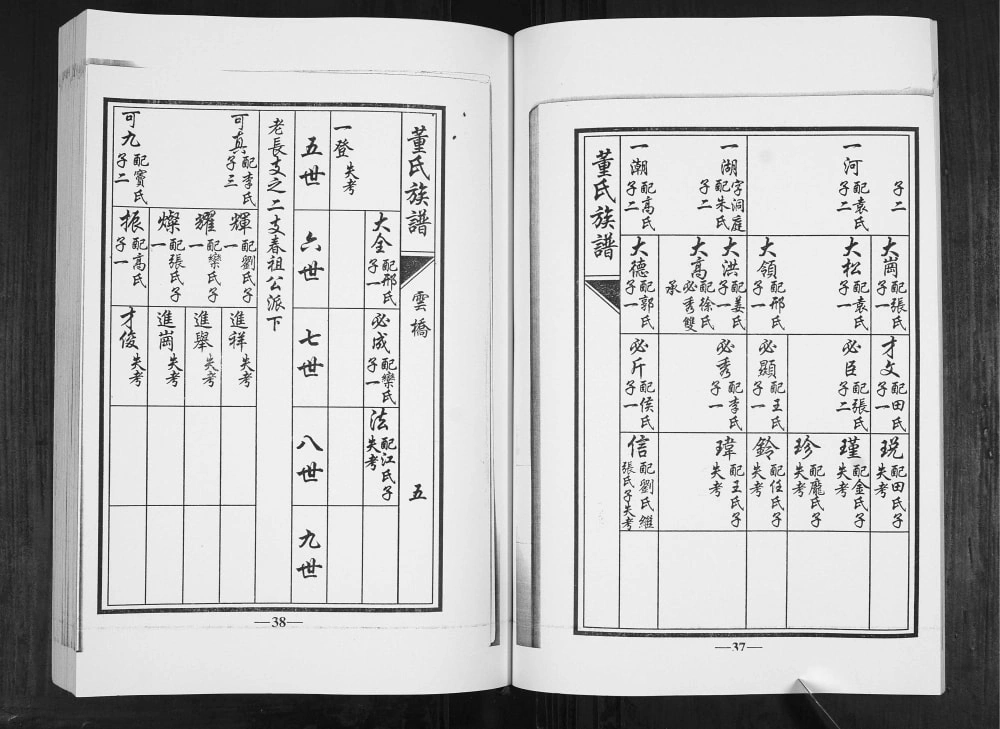 子二
一河 配袁氏 子二
一湖 字洞庭 配朱氏 子二
一潮 配高氏 子二
大崗 配張氏 子一
大松 配袁氏 子一
大領 配邢氏 子一
大洪 配姜氏 子一
大高 配徐氏 必秀雙承
大德 配郭氏 子一
才文 配田氏 子一
必臣 配張氏 子二
必顯 配王氏 子一
必秀 配李氏 子一
必斤 配侯氏 子一
玧 配田氏子失考
瑾 配金氏子失考
珍 配龐氏子失考
鈴 配任氏子失考
瑋 配王氏子失考
信 配劉氏繼張氏子失考
董氏族譜
—37—
董氏族譜
雲橋
五
一登 失考
大全 配邢氏 子一
必成 配欒氏 子一
法 配江氏子失考
五世
六世
七世
八世
九世
老長支之二支春祖公派下
可真 配李氏 子三
可九 配竇氏 子二
輝 配劉氏子一
耀 配欒氏子一
燦 配張氏子一
振 配高氏子一
進祥 失考
進舉 失考
進崗 失考
才俊 失考
—38—